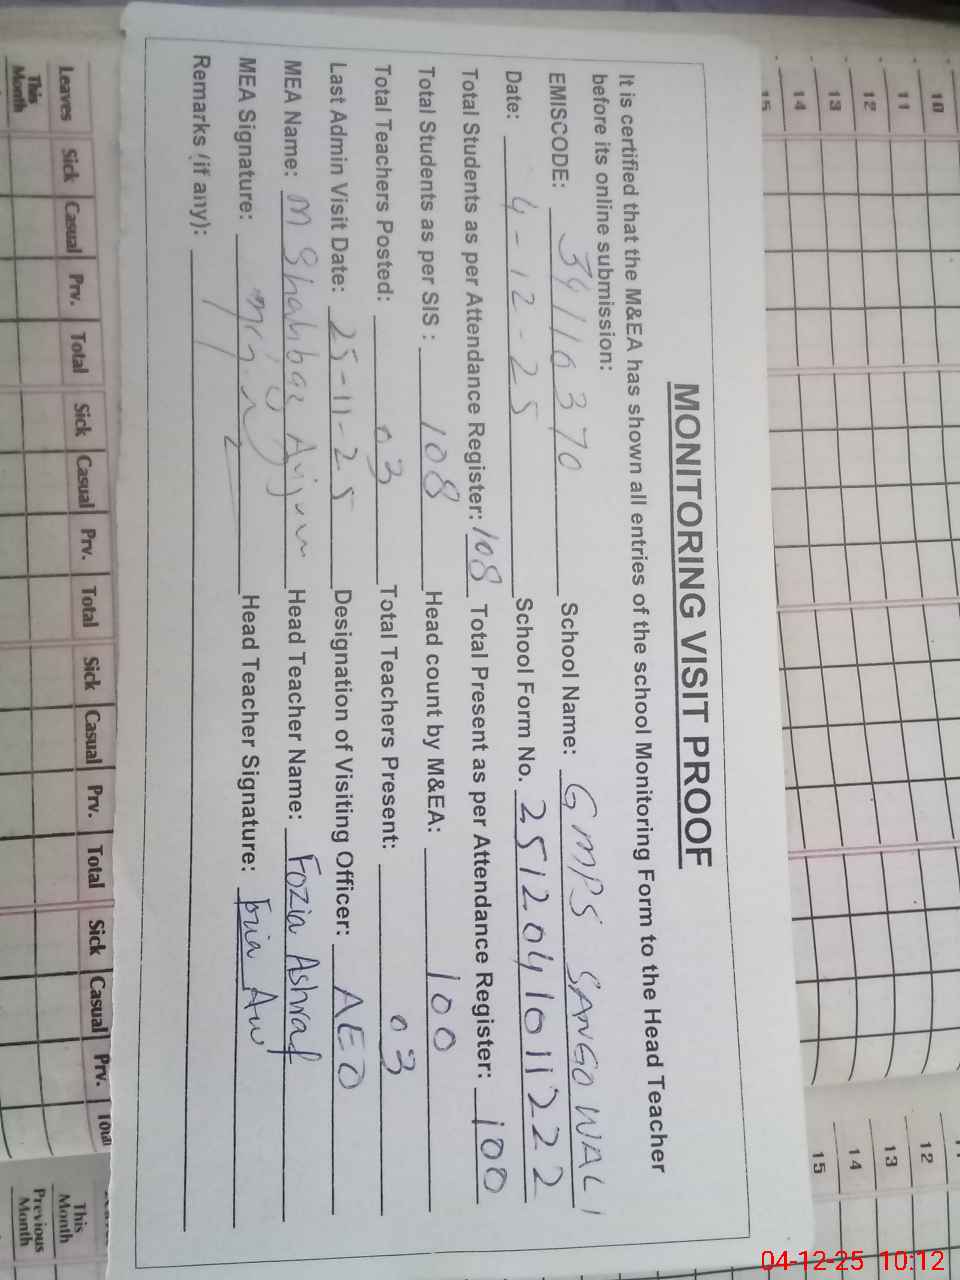 MONITORING VISIT PROOF
It is certified that the M&EA has shown all entries of the school Monitoring Form to the Head Teacher
before its online submission:
EMISCODE: 34116370 School Name: GMPS SANGOWALI
Date: 4-12-25 School Form No. 2512041011222
Total Students as per Attendance Register: 108 Total Present as per Attendance Register: 100
Total Students as per SIS : 108 Head count by M&EA: 100
Total Teachers Posted: 03 Total Teachers Present: 03
Last Admin Visit Date: 25-11-25 Designation of Visiting Officer: AEO
MEA Name: M Shahbaz Anjum Head Teacher Name: Fozia Ashraf
MEA Signature: Head Teacher Signature:
Remarks (if any):
Leaves Sick Casual Prv. Total Sick Casual Prv. Total Sick Casual Prv. Total Sick Casual Prv. Total
This Month
This Month
Previous Month
10
11
12
13
14
15
12
13
14
15
04-12-25 10:12